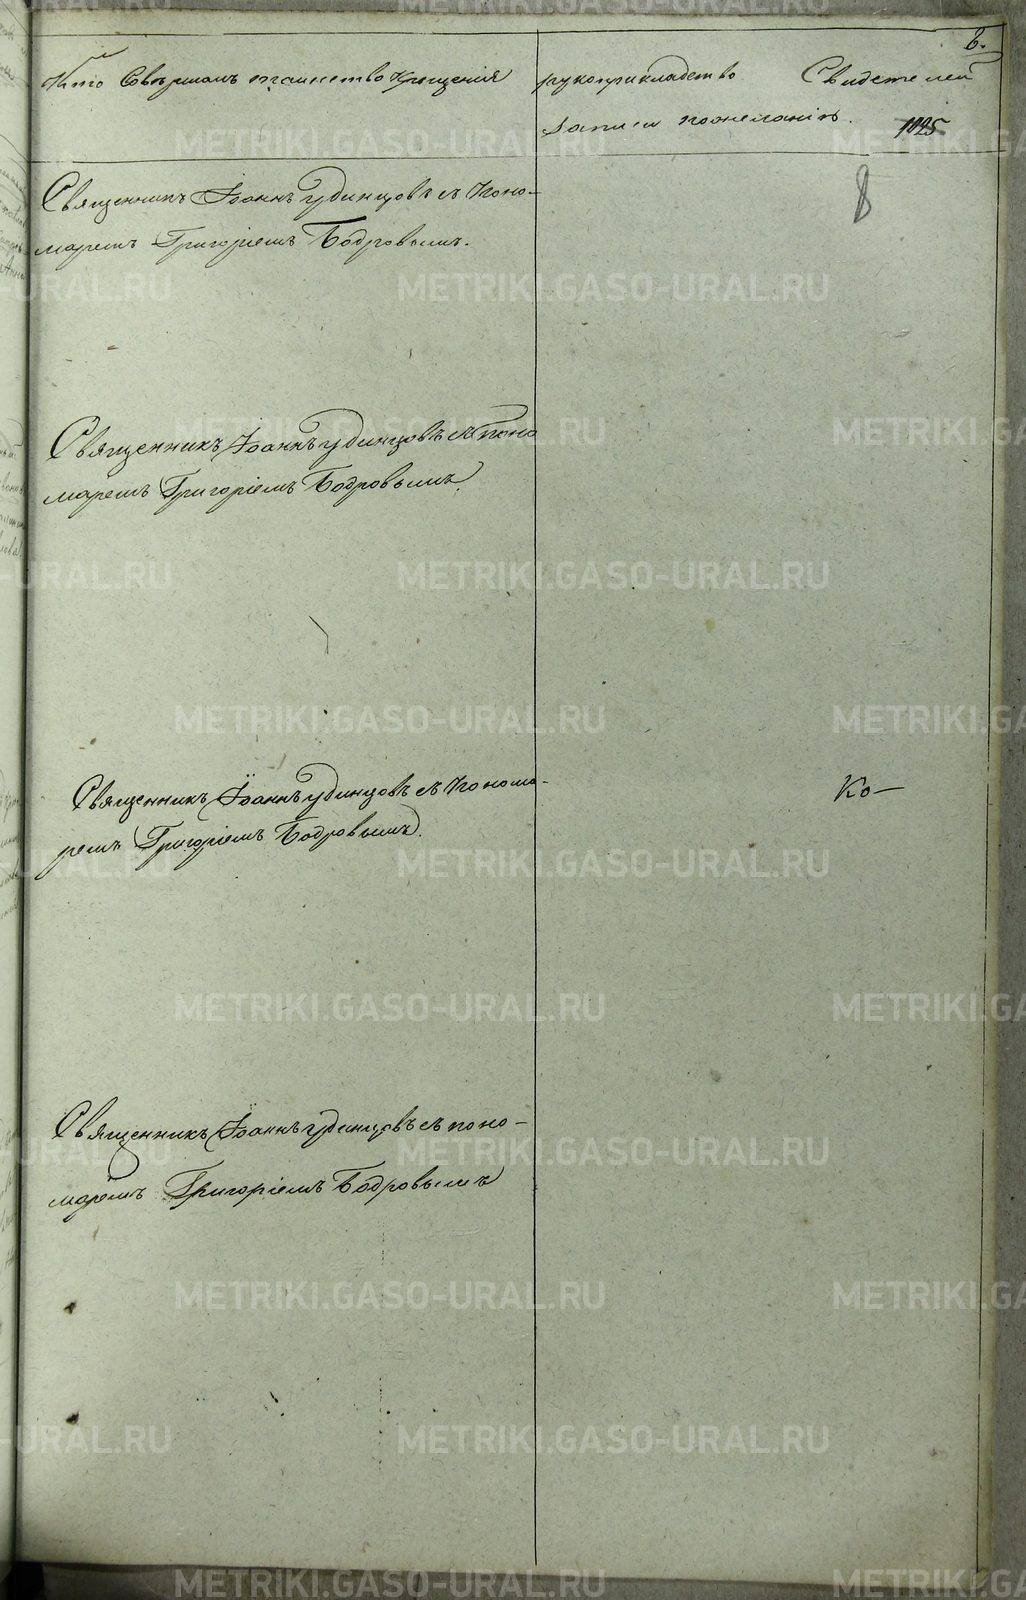 6.
Кто Совершалъ таинство Крещенія
рукоприкладство Свидетелей
записи по желанію.
8
Священникъ Іоаннъ Удинцовъ съ Поно-
маремъ Григоріемъ Бодровымъ.
Священникъ Іоаннъ Удинцовъ съ Поно
маремъ Григоріемъ Бодровымъ.
Священникъ Іоаннъ Удинцовъ съ Понома-
ремъ Григоріемъ Бодровымъ.
Ко-
Священникъ Іоаннъ Удинцовъ съ поно-
маремъ Григоріемъ Бодровымъ
METRIKI.GASO-URAL.RU